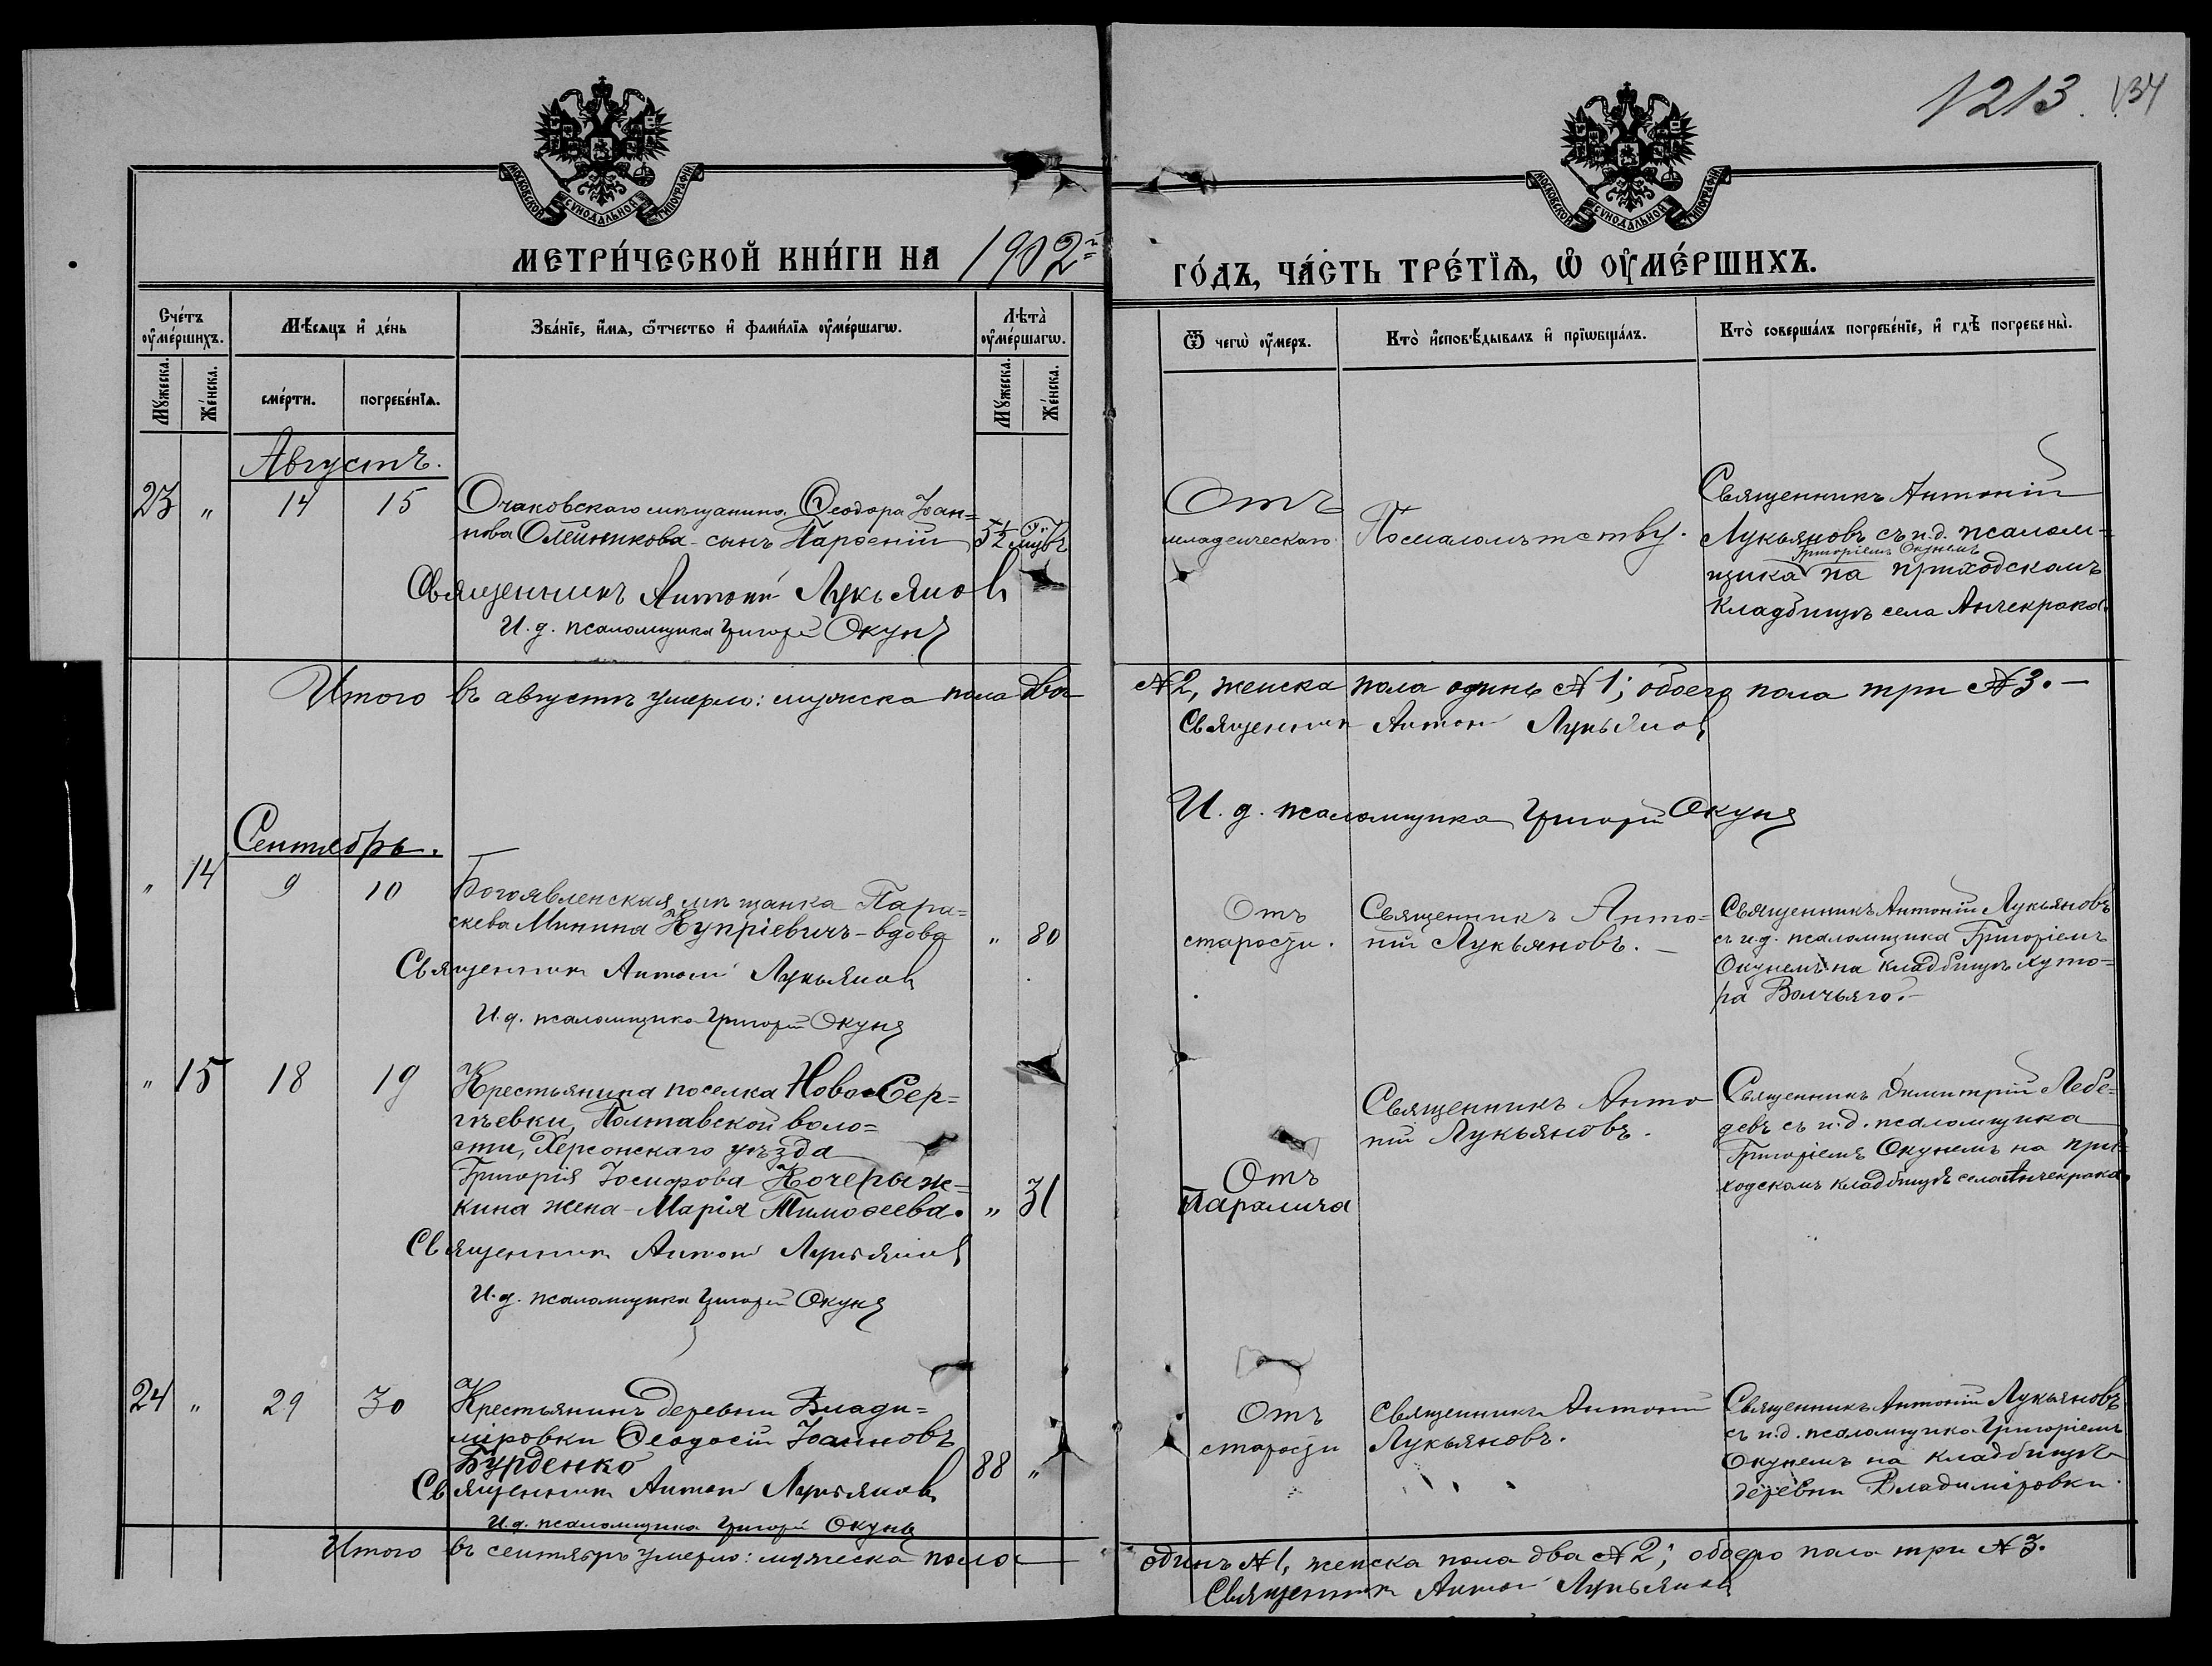 1213. 134
МОСКОВСКОЙ СѴНОДАЛЬНОЙ ТИПОГРАФІИ
МОСКОВСКОЙ СѴНОДАЛЬНОЙ ТИПОГРАФІИ
МЕТРИ́ЧЕСКОЙ КНИ́ГИ НА 1902 г.
ГО́ДЪ, ЧА́СТЬ ТРЕ́ТЇѦ, Ѽ ОУ҆МЕ́РШИХЪ.
Сче́тъ оу҆ме́ршихъ.
Мѣ́сяцъ и҆ де́нь
Зва́нїе, и҆́мѧ, ѻ҆́тчество и҆ фами́лїѧ оу҆ме́ршагѡ.
Лѣ́та оу҆ме́ршагѡ.
Ѿ чегѡ̀ оу҆́меръ.
Кто̀ и҆сповѣ́дывалъ и҆ прїѡбща́лъ.
Кто̀ соверша́лъ погребе́нїе, и҆ гдѣ̀ погребены̀.
Мꙋ́жеска. Же́нска.
сме́рти. погребе́нїѧ.
Мꙋ́жеска. Же́нска.
Августъ.
23 " 14 15
Очаковскаго мѣщанина Ѳеодора Іоан=
нова Олейникова - сынъ Парѳеній
5½ "
Священникъ Антоній Лукьянов
И. д. псаломщика Григорій Окунь
Отъ
младенческаго.
По малолѣтству.
Священникъ Антоній
Лукьяновъ съ и.д. псалом=
Григоріемъ Окунемъ
щика на приходскомъ
кладбищѣ села Анчекрака.
Итого въ августѣ умерло: мужеска пола два
№2, женска пола одинъ №1; обоего пола три №3.—
Священник Антоній Лукьянов
И. д. псаломщика Григорій Окунь
Сентябрь.
" 14 9 10
Богоявленская мѣщанка Пара=
скева Минина Купріевичъ - вдова
" 80
Священник Антоній Лукьянов
И. д. псаломщика Григорій Окунь
Отъ
старости.
Священникъ Анто=
ній Лукьяновъ. —
Священникъ Антоній Лукьяновъ
съ и.д. псаломщика Григоріемъ
Окунемъ на кладбищѣ хуто=
ра Волчьяго.—
" 15 18 19
Крестьянина поселка Ново-Сер=
гѣевки, Полтавской воло=
сти, Херсонскаго уѣзда
Григорія Іосифова Кочерыж=
кина жена - Марія Тимоѳеева.
" 31
Священник Антоній Лукьянов
И. д. псаломщика Григорій Окунь
Отъ
паралича
Священникъ Анто
ній Лукьяновъ.
Священникъ Димитрій Лебе=
девъ съ и.д. псаломщика
Григоріемъ Окунемъ на при=
ходскомъ кладбищѣ села Анчекрака.
24 " 29 30
Крестьянинъ деревни Влади=
міровки Ѳеодосій Іоанновъ
Бурденко
88 "
Священник Антоній Лукьянов
И. д. псаломщика Григорій Окунь
Отъ
старости
Священникъ Антоній
Лукьяновъ.
Священникъ Антоній Лукьяновъ
съ и.д. псаломщика Григоріемъ
Окунемъ на кладбищѣ
деревни Владиміровки.
Итого въ сентябрѣ умерло: мужеска пола
одинъ №1, женска пола два №2; обоего пола три №3.
Священник Антоній Лукьянов